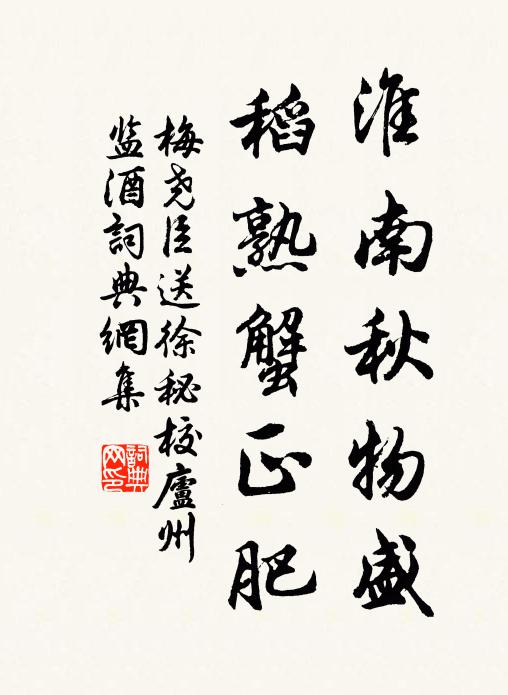 淮南秋物盛
稻熟蟹正肥
梅尧臣送徐秘校廬州
监酒詞典網集
詞典网印